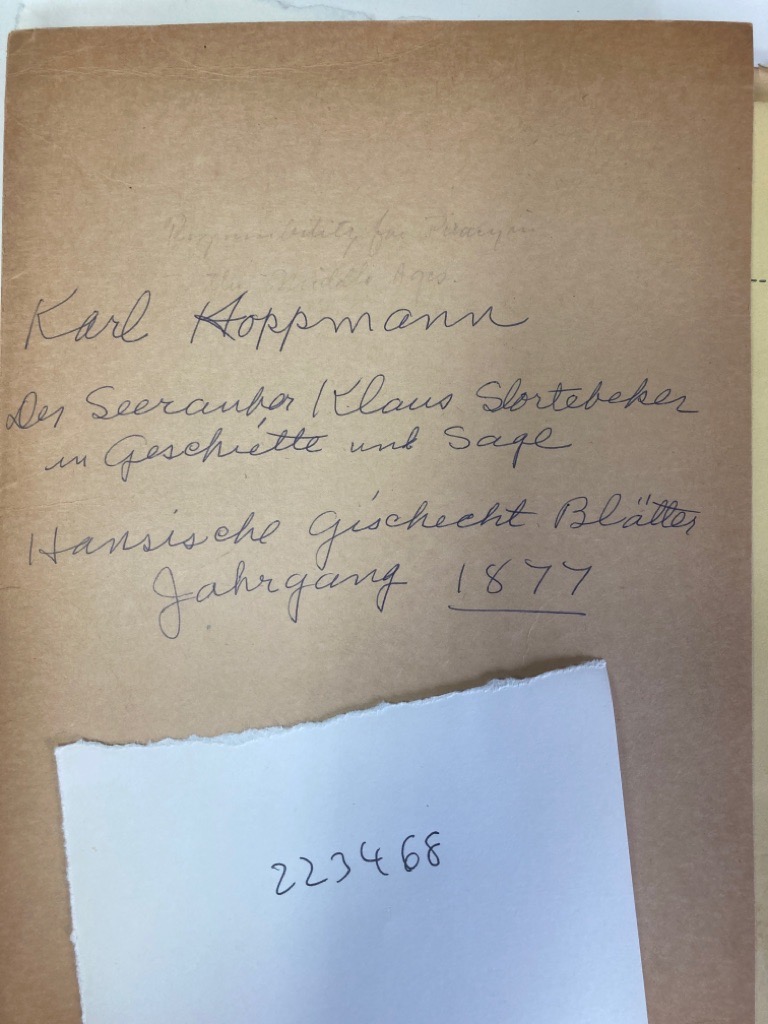 Responsibility for Piracy in
the Middle Ages.
Karl Hoppmann
Der Seerauber Klaus Stortebeker
in Geschiette und Sage
Hansische Gischecht Blätter
Jahrgang 1877
223468